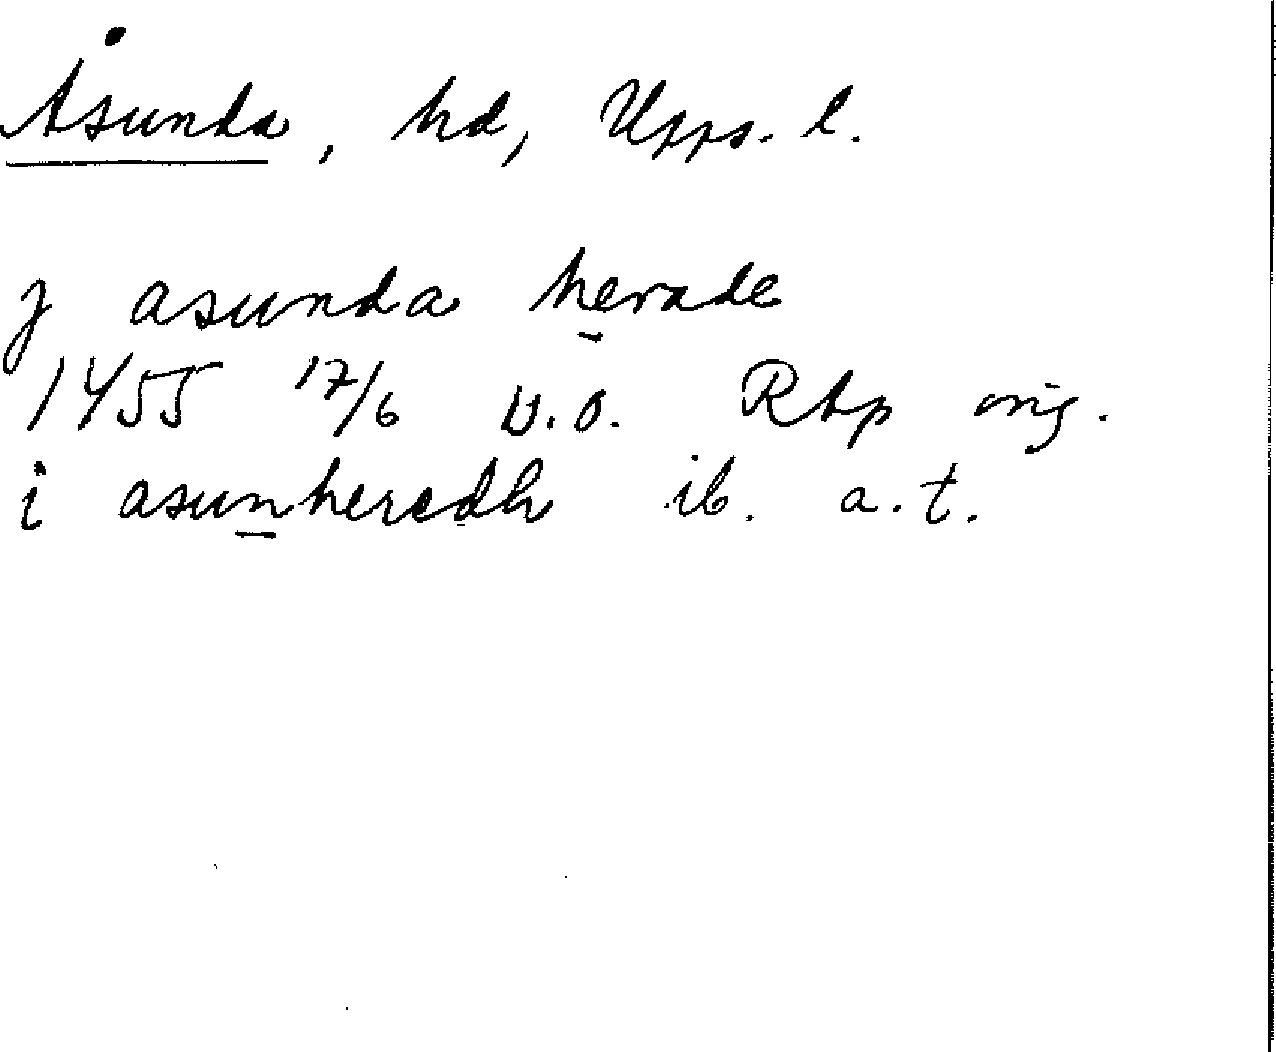 Åsunda, hd, Upps. l.
j asunda herade
1455 17/6 u.o. Rap orig.
i asunheredh ib. a.t.